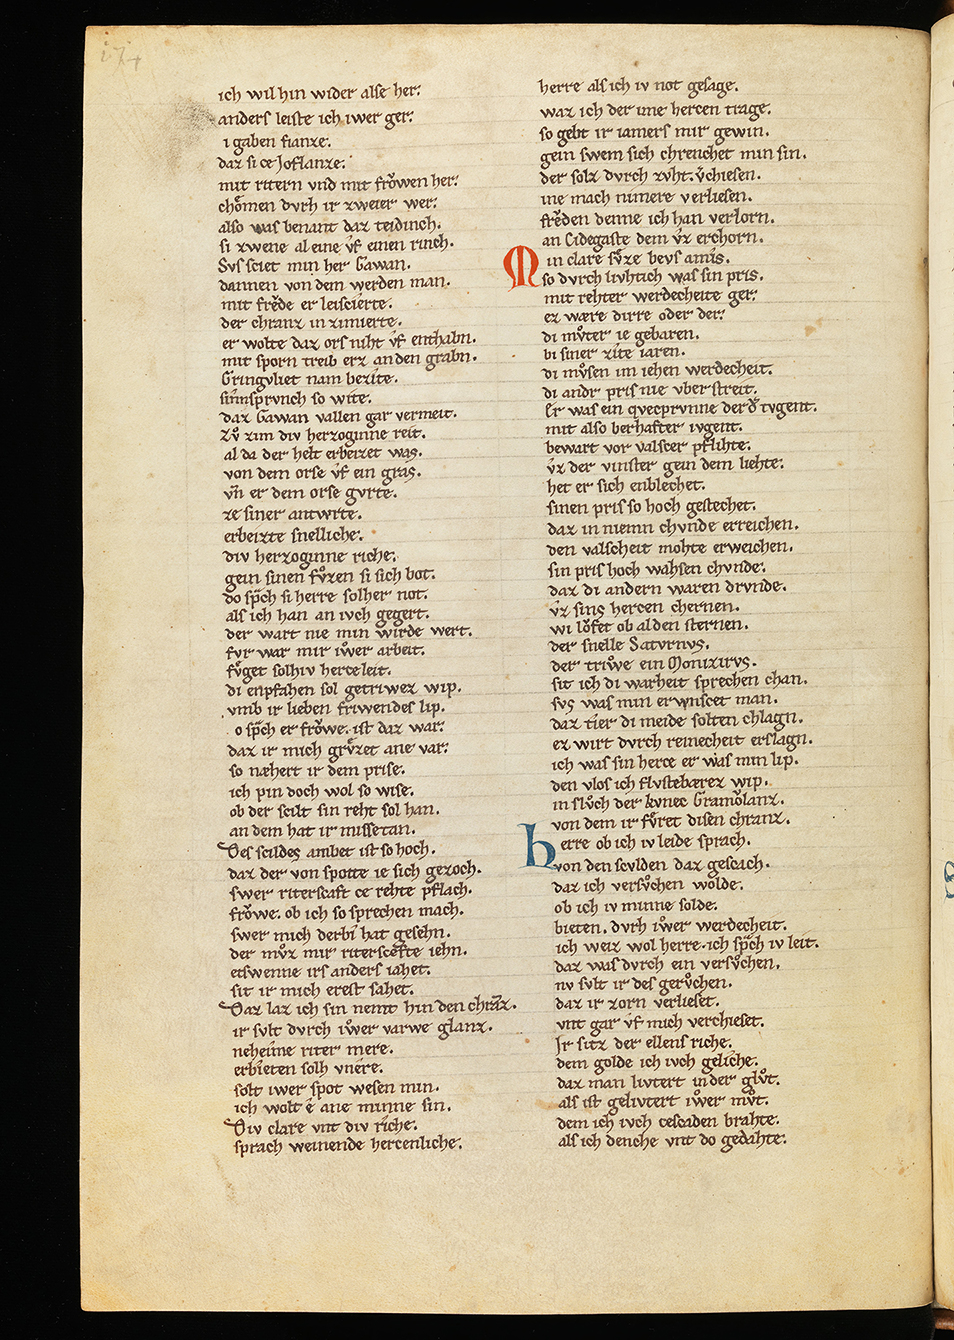 174
ich wil hin wider alse her:
anders leiste ich iwer ger:
i gaben fianze.
daz si ce Joflanze.
mit ritern vnd mit froͮwen her:
choͤmen dvrh ir zweier wer:
also was benant daz teidinch.
si zwene al eine v̂f einen rinch.
Svs sciet min her Gawan.
dannen von dem werden man.
mit frevͤde er leiscierte.
der chranz in zimierte.
er wolte daz ors niht v̂f enthabn.
mit sporn treib erz an den grabn.
Gringvliet nam bezite.
sinn̄ sprvnch so wite.
daz Gawan vallen gar vermeit.
Zvͦ zim div herzoginne reit.
al da der helt erbeizet was.
von dem orse v̂f ein gras.
vn̄ er dem orse gvrte.
ze siner antwrte.
erbeizte snelliche.
div herzoginne riche.
gein sinen fvͦzen si sich bot.
do sp̄ch si herre solher not.
als ich han an ivch gegert.
der wart nie min wirde wert.
fvr war mir iwͦer arbeit.
fvͤget solhiv herceleit.
di enpfahen sol getriwez wip.
vmb ir lieben friwendes lip.
o sp̄ch er froͮwe. ist daz war:
daz ir mich grvͤzet ane var:
so næhert ir dem prise.
ich pin doch wol so wise.
ob der scilt sin reht sol han.
an dem hat ir missetan.
Des scildes ambet ist so hoch.
daz der von spotte ie sich gezoch.
swer riterscaft ce rehte pflach.
froͮwe. ob ich so sprechen mach.
swer mich derbi hat gesehn.
der mvͦz mir riterscefte iehn.
etswenne irs anders iahet.
sit ir mich erest sahet.
Daz laz ich sin nemt hin den chranz.
ir svlt dvrch iwͦer varwe glanz.
neheime riter mere.
erbieten solh vnere.
solt iwer spot wesen min.
ich wolt ê ane minne sin.
Div clare vnt div riche.
sprach weinende hercenliche.
herre als ich iv not gesage.
waz ich der ime hercen trage.
so gebt ir iamers mir gewin.
gein swem sich chrenchet min sin.
der solz dvrch zvht. v̄chiesen.
ine mach nimere verliesen.
frevͤden denne ich han verlorn.
an Cidegaste dem v̂z erchorn.
Min clare svͤze bevs amis.
so dvrch livhtich was sin pris.
mit rehter werdecheite ger:
ez wære dirre oder der:
di mvͦter ie gebaren.
bi siner zite iaren.
di mvͦsen im iehen werdecheit.
di andr pris nie vber streit.
Er was ein qvecprvnne der tvgent.
mit also berhafter ivgent.
bewart vor valscer pflihte.
v̂z der vinster gein dem liehte.
het er sich enblechet.
sinen pris so hoch gestechet.
daz in niemn chvnde erreichen.
den valscheit mohte erweichen.
sin pris hoch wahsen chvnde.
daz di andern waren drvnde.
v̂z sins hercen chernen.
wi loͮfet ob al den sternen.
der snelle Satvrnvs.
der triwͦe ein Monizirvs.
sit ich di warheit sprechen chan.
svs was min erwnscet man.
daz tier di meide solten chlagn.
ez wirt dvrch reinecheit erslagn.
ich was sin herce er was min lip.
den vlos ich flvstebærez wip.
in slvͦch der kvnec Gramoͮlanz.
von dem ir fvͤret disen chranz.
herre ob ich iv leide sprach.
von den scvlden daz gescach.
daz ich versvͦchen wolde.
ob ich iv minne solde.
bieten. dvrh iwͦer werdecheit.
ich weiz wol herre. ich sp̄ch iv leit.
daz was dvrch ein versvͦchen.
nv svlt ir des gervͦchen.
daz ir zorn verlieset.
vnt gar v̂f mich verchieset.
Jr sitz der ellens riche.
dem golde ich ivch geliche.
daz man livtert in der glvͦt.
als ist gelivtert iwͦer mvͦt.
dem ich ivch cescaden brahte.
als ich denche vnt do gedahte.